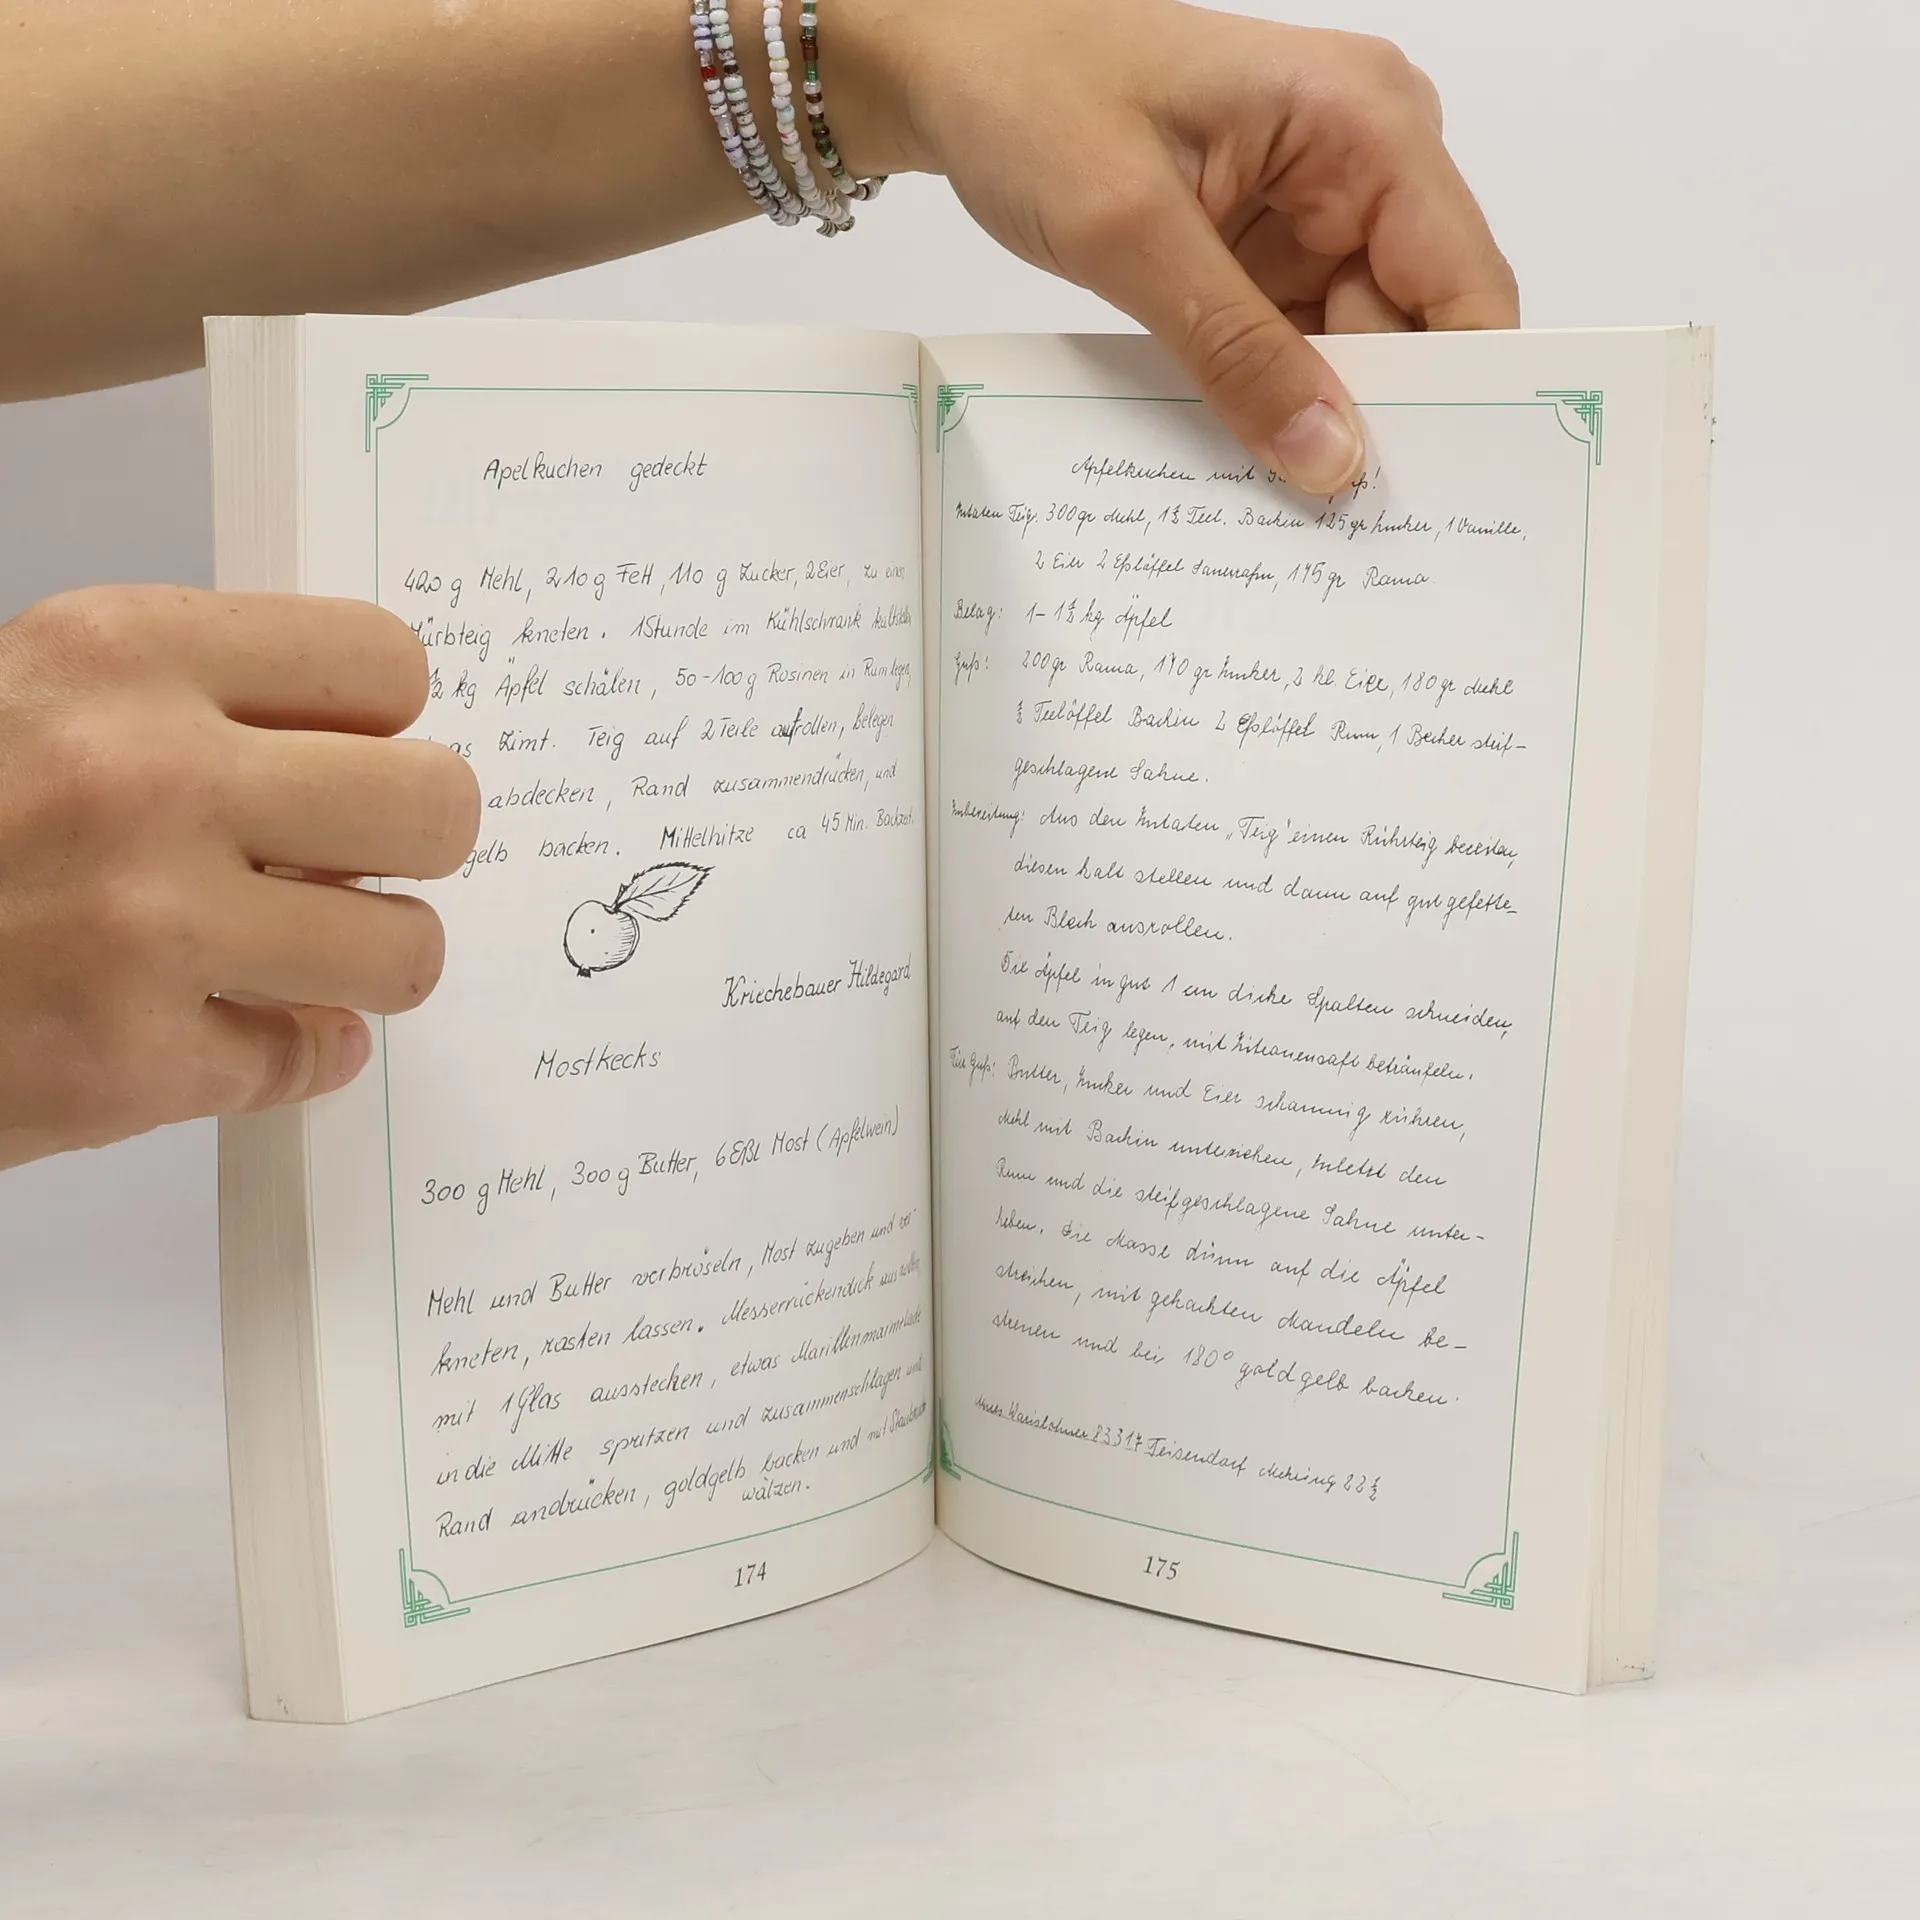 Apelkuchen gedeckt
420 g Mehl, 210 g Fett, 110 g Zucker, 2 Eier, zu einen
Mürbteig kneten. 1 Stunde im Kühlschrank kaltstellen
½ kg Äpfel schälen, 50-100 g Rosinen in Rum legen,
Zimt. Teig auf 2 Teile aufrollen, belegen
abdecken, Rand zusammendrücken, und
gelb backen. Mittelhitze ca 45 Min. Backzeit.
Kriechebauer Hildegard
Mostkecks
300 g Mehl, 300 g Butter, 6 Eßl Most (Apfelwein)
Mehl und Butter verbröseln, Most zugeben und ver-
kneten, rasten lassen. Messerrückendick ausrollen,
mit 1 Glas ausstecken, etwas Marillenmarmelade
in die Mitte spritzen und zusammenschlagen und
Rand andrücken, goldgelb backen und mit Staubzucker
wälzen.
174
Apfelkuchen mit
Zutaten Teig: 300 gr Mehl, 1½ Teel. Backin 125 gr Zucker, 1 Vanille,
2 Eier 2 Eßlöffel Sauerrahm, 175 gr Rama.
Belag: 1-1½ kg Äpfel
Guß: 200 gr Rama, 170 gr Zucker, 3 kl. Eier, 180 gr Mehl
½ Teelöffel Backin 2 Eßlöffel Rum, 1 Becher steif-
geschlagene Sahne.
Zubereitung: Aus den Zutaten „Teig" einen Rührteig bereiten,
diesen kalt stellen und dann auf gut gefette-
ten Blech ausrollen.
Die Äpfel in gut 1 cm dicke Spalten schneiden,
auf den Teig legen, mit Zitronensaft beträufeln.
Für Guß: Butter, Zucker und Eier schaumig rühren,
Mehl mit Backin unterziehen, zuletzt den
Rum und die steifgeschlagene Sahne unter-
heben. Die Masse dünn auf die Äpfel
streichen, mit gehackten Mandeln be-
streuen und bei 180° goldgelb backen.
83317 Teisendorf Mehring 22½
175